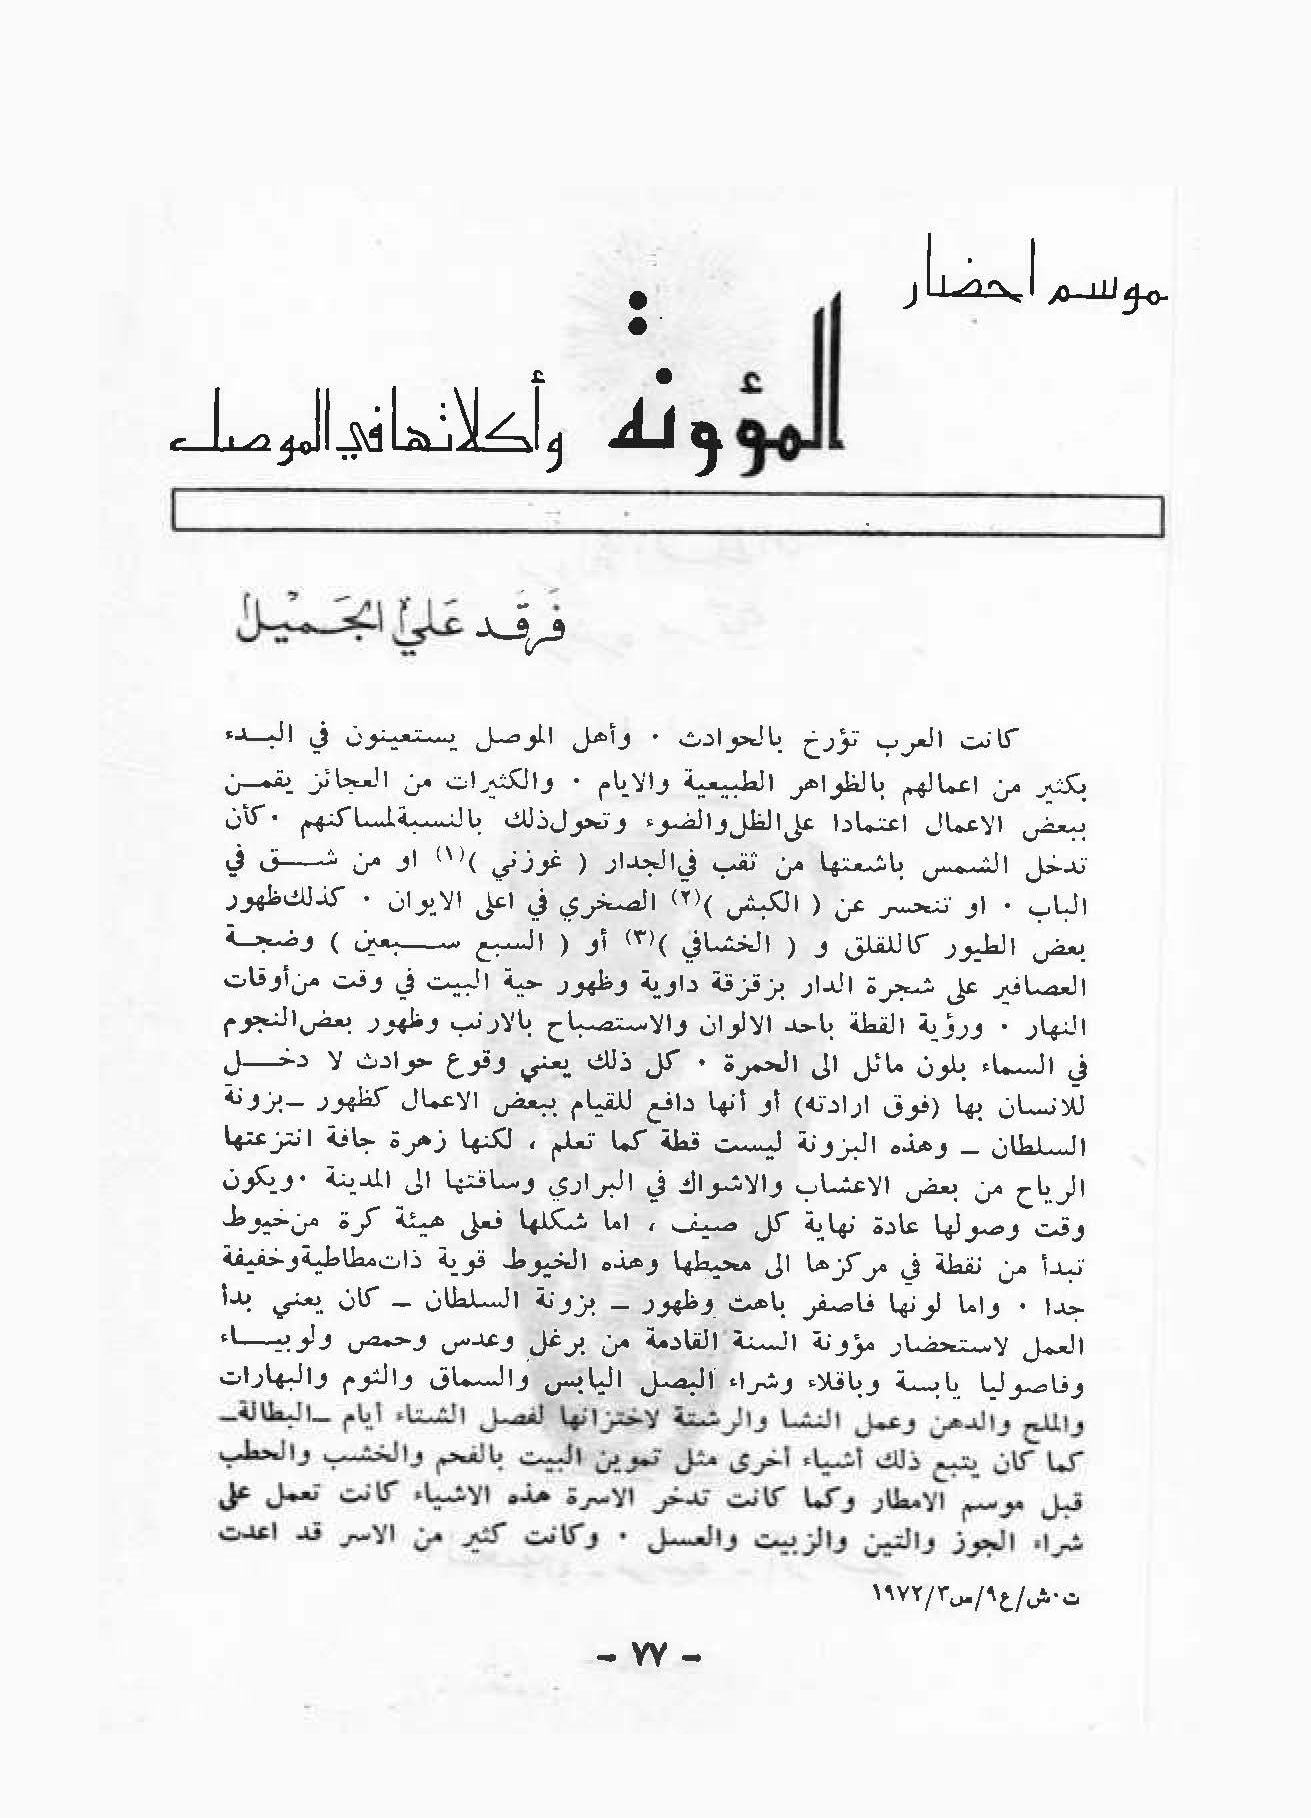 موسم احضار
المؤونة وأكلاتها في الموصل
فَرقَد عَلي الجَميْل
كانت العرب تؤرخ بالحوادث ٠ وأهل الموصل يستعينون في البـدء
بكثير من اعمالهم بالظواهر الطبيعية والايام ٠ والكثيرات من العجائز يقمـن
ببعض الاعمال اعتمادا على الظل والضوء وتحول ذلك بالنسبة لمساكنهم ٠ كأن
تدخل الشمس باشعتها من ثقب في الجدار ( غوزني )(١) او من شـــق في
الباب ٠ او تنحسر عن ( الكبش )(٢) الصخري في اعلى الايوان ٠ كذلك ظهور
بعض الطيور كاللقلق و ( الخشافي )(٣) أو ( السبع ســـبعين ) وضجـة
العصافير على شجرة الدار بزقزقة داوية وظهور حية البيت في وقت من أوقات
النهار ٠ ورؤية القطة باحد الالوان والاستصباح بالارنب وظهور بعض النجوم
في السماء بلون مائل الى الحمرة ٠ كل ذلك يعني وقوع حوادث لا دخـــل
للانسان بها (فوق ارادته) أو أنها دافع للقيام ببعض الاعمال كظهور ـ بزونة
السلطان ـ وهذه البزونة ليست قطة كما تعلم ، لكنها زهرة جافة انتزعتها
الرياح من بعض الاعشاب والاشواك في البراري وساقتها الى المدينة ٠ ويكون
وقت وصولها عادة نهاية كل صيف ، اما شكلها فعلى هيئة كرة من خيوط
تبدأ من نقطة في مركزها الى محيطها وهذه الخيوط قوية ذات مطاطية وخفيفة
جدا ٠ واما لونها فاصفر باهت وظهور ـ بزونة السلطان ـ كان يعني بدأ
العمل لاستحضار مؤونة السنة القادمة من برغل وعدس وحمص ولوبيـــاء
وفاصوليا يابسة وباقلاء وشراء البصل اليابس والسماق والثوم والبهارات
والملح والدهن وعمل النشا والرشتة لاختزانها لفصل الشتاء أيام ـ البطالة ـ
كما كان يتبع ذلك أشياء أخرى مثل تموين البيت بالفحم والخشب والحطب
قبل موسم الامطار وكما كانت تدخر الاسرة هذه الاشياء كانت تعمل على
شراء الجوز والتين والزبيب والعسل ٠ وكانت كثير من الاسر قد اعدت
ت٠ش/ع٩/س٣/١٩٧٢
- ٧٧ -